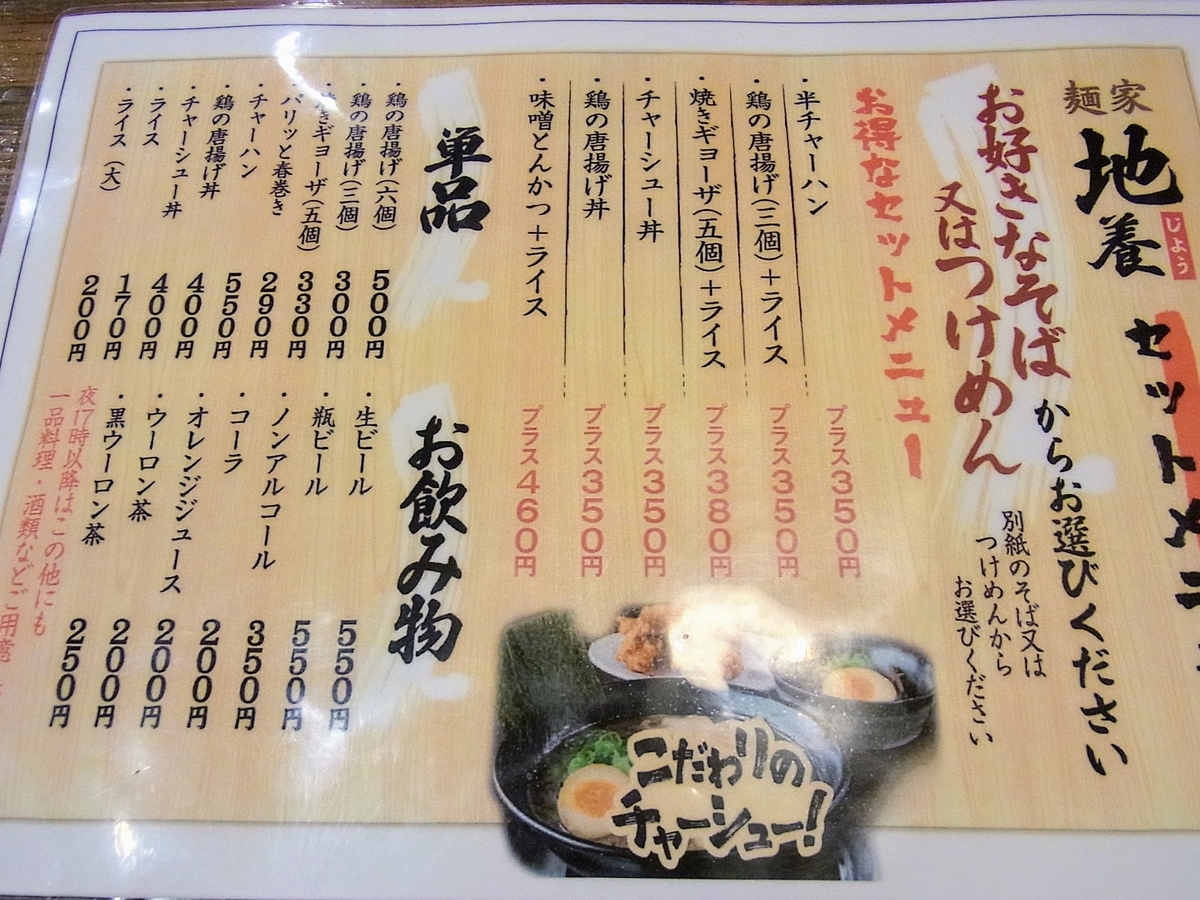 麺家
地養
じょう
セットメニ
お好きなそば
又はつけめん
からお選びください
別紙のそば又は
つけめんから
お選びください
お得なセットメニュー
・半チャーハン プラス350円
・鶏の唐揚げ(三個)+ライス プラス350円
・焼きギョーザ(五個)+ライス プラス380円
・チャーシュー丼 プラス350円
・鶏の唐揚げ丼 プラス350円
・味噌とんかつ+ライス プラス460円
単品
・鶏の唐揚げ(六個) 500円
・鶏の唐揚げ(三個) 300円
・焼きギョーザ(五個) 330円
・パリッと春巻き 290円
・チャーハン 550円
・鶏の唐揚げ丼 400円
・チャーシュー丼 400円
・ライス 170円
・ライス(大) 200円
お飲み物
・生ビール 550円
・瓶ビール 550円
・ノンアルコール 350円
・コーラ 200円
・オレンジジュース 200円
・ウーロン茶 200円
・黒ウーロン茶 250円
夜17時以降はこの他にも
一品料理・酒類などご用意
こだわりの
チャーシュー!